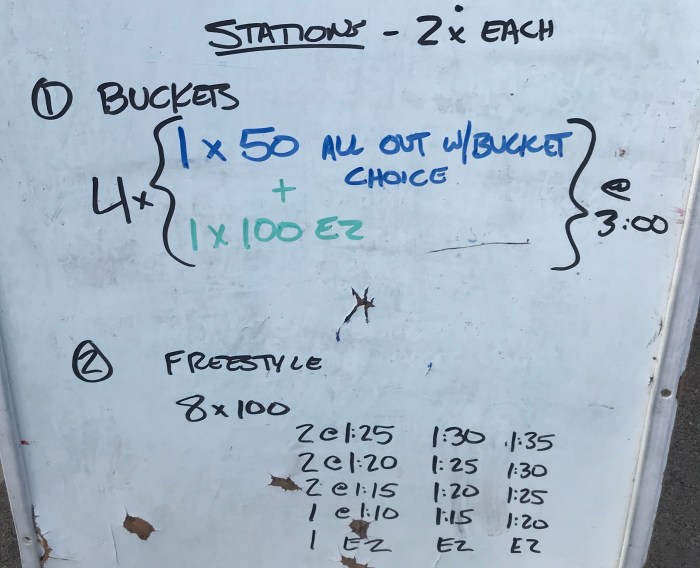 STATIONS - 2x EACH
① BUCKETS
4x { 1 x 50 ALL OUT W/BUCKET CHOICE
+
1 x 100 EZ } @ 3:00
② FREESTYLE
8 x 100
2 @ 1:25 1:30 1:35
2 @ 1:20 1:25 1:30
2 @ 1:15 1:20 1:25
1 @ 1:10 1:15 1:20
1 EZ EZ EZ